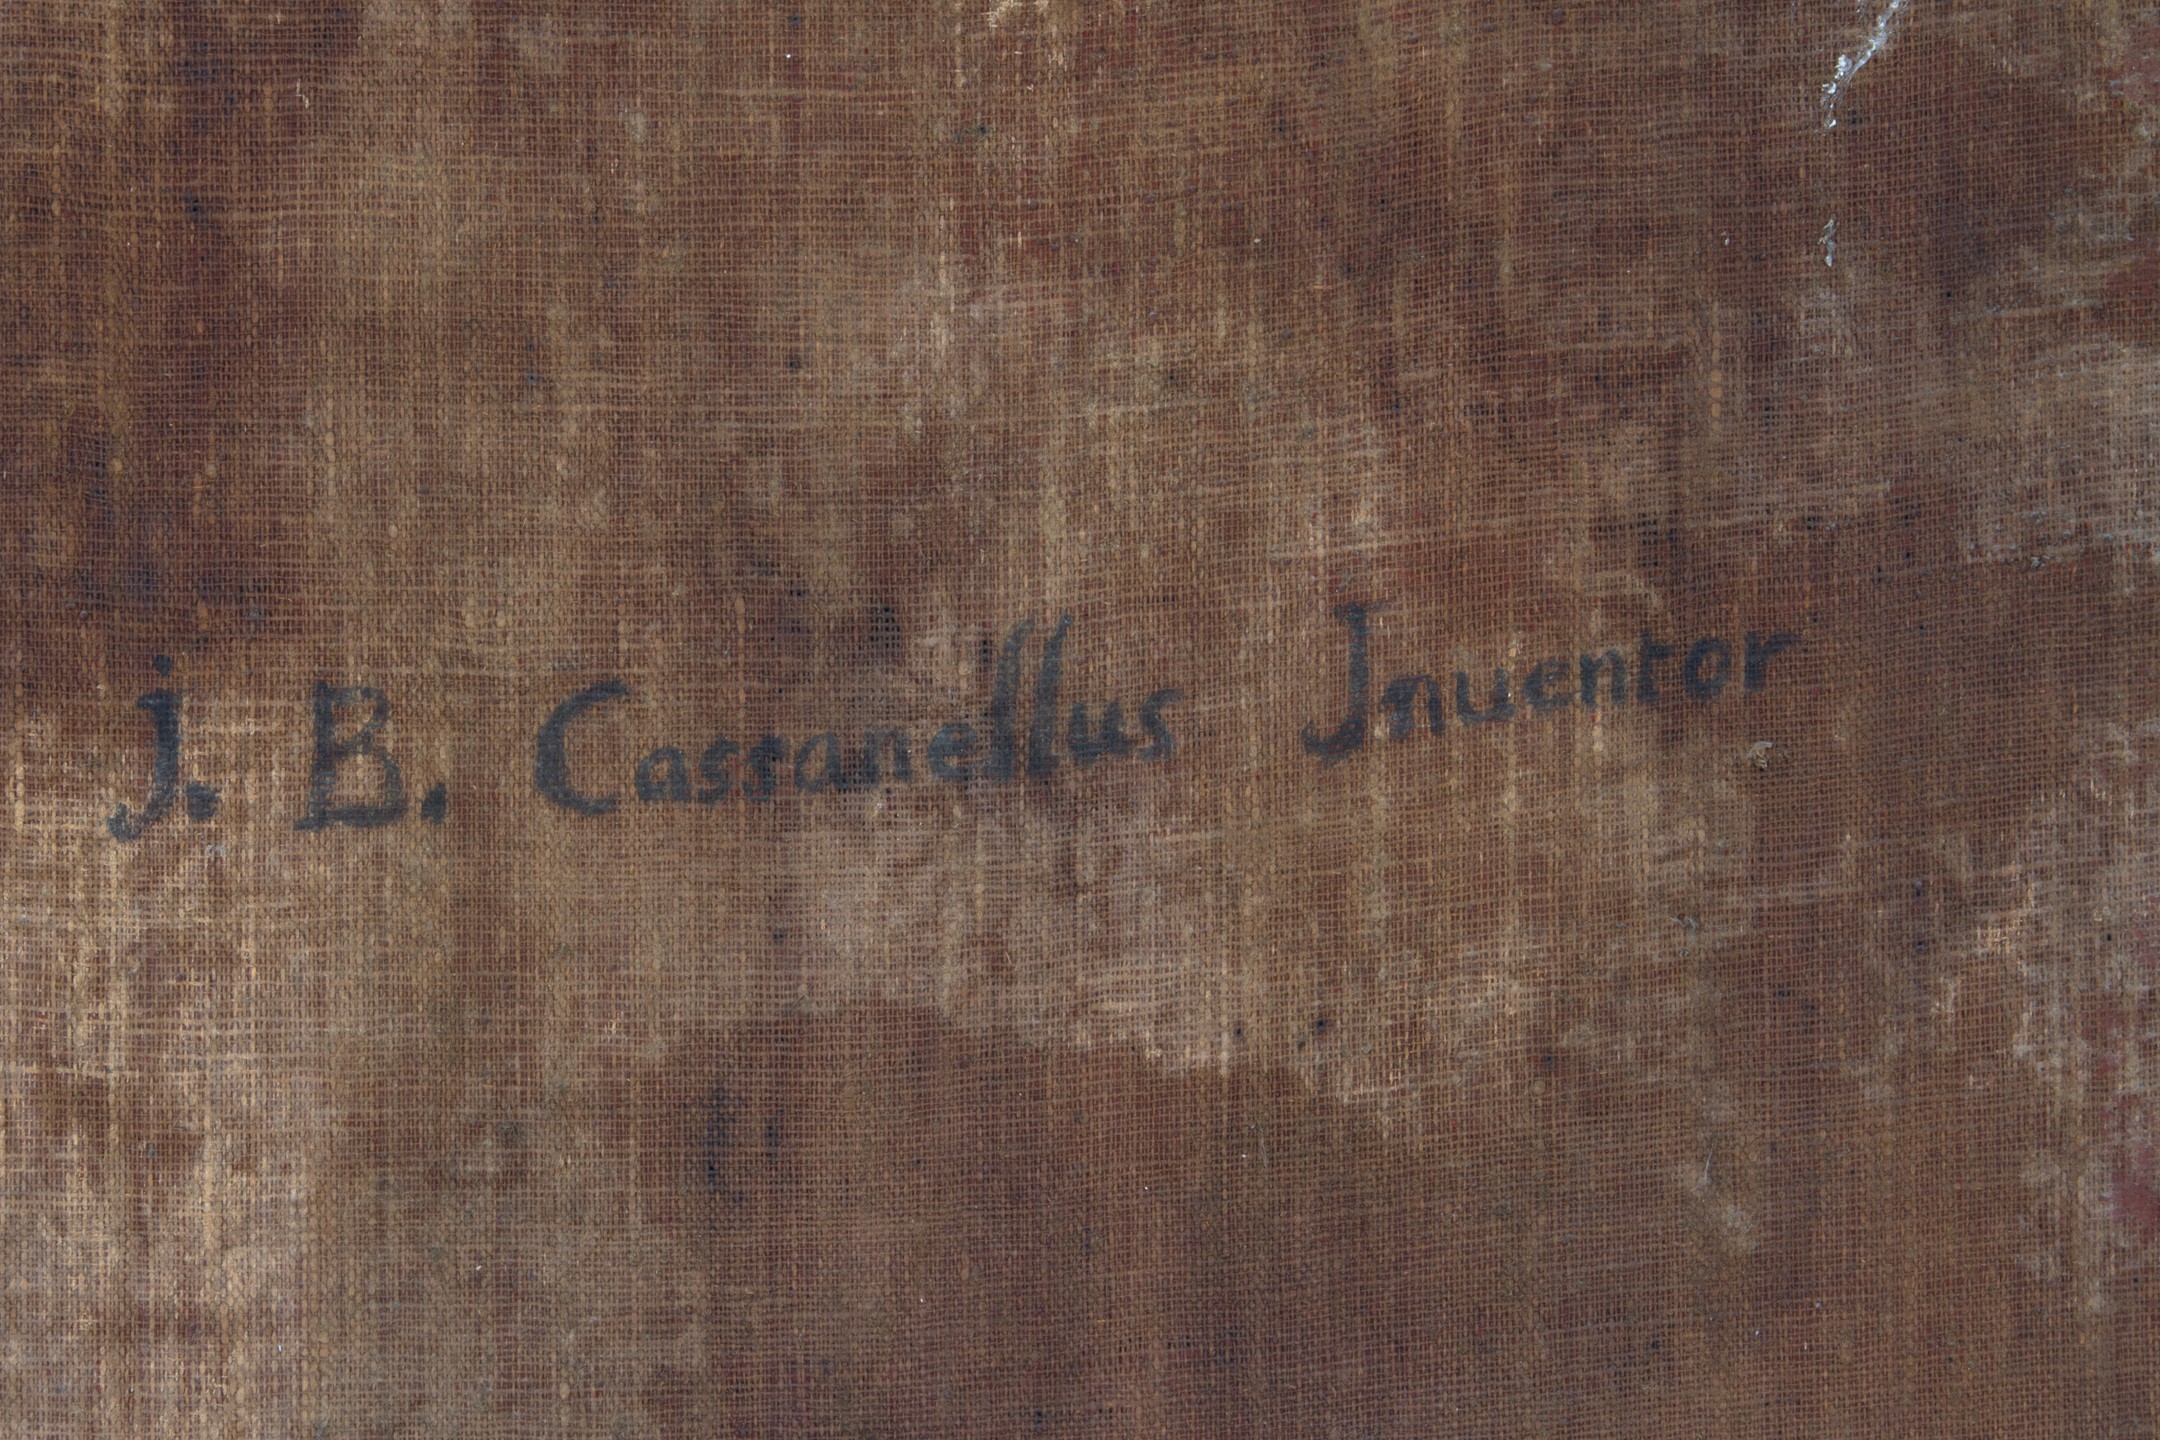 J. B. Cassanellus Jnuentor